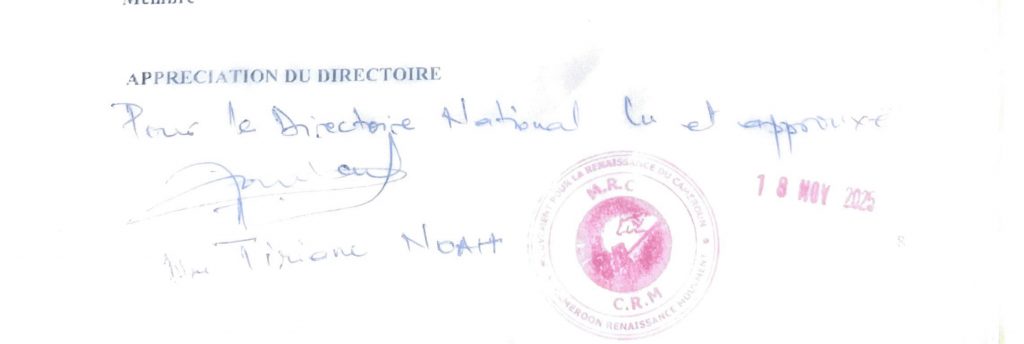 Membre
APPRECIATION DU DIRECTOIRE
Pour le Directoire National lu et approuvé
18 NOV 2025
MOUVEMENT POUR LA RENAISSANCE DU CAMEROUN
M.R.C
C.R.M
CAMEROON RENAISSANCE MOVEMENT
Tiriane NOAH
8